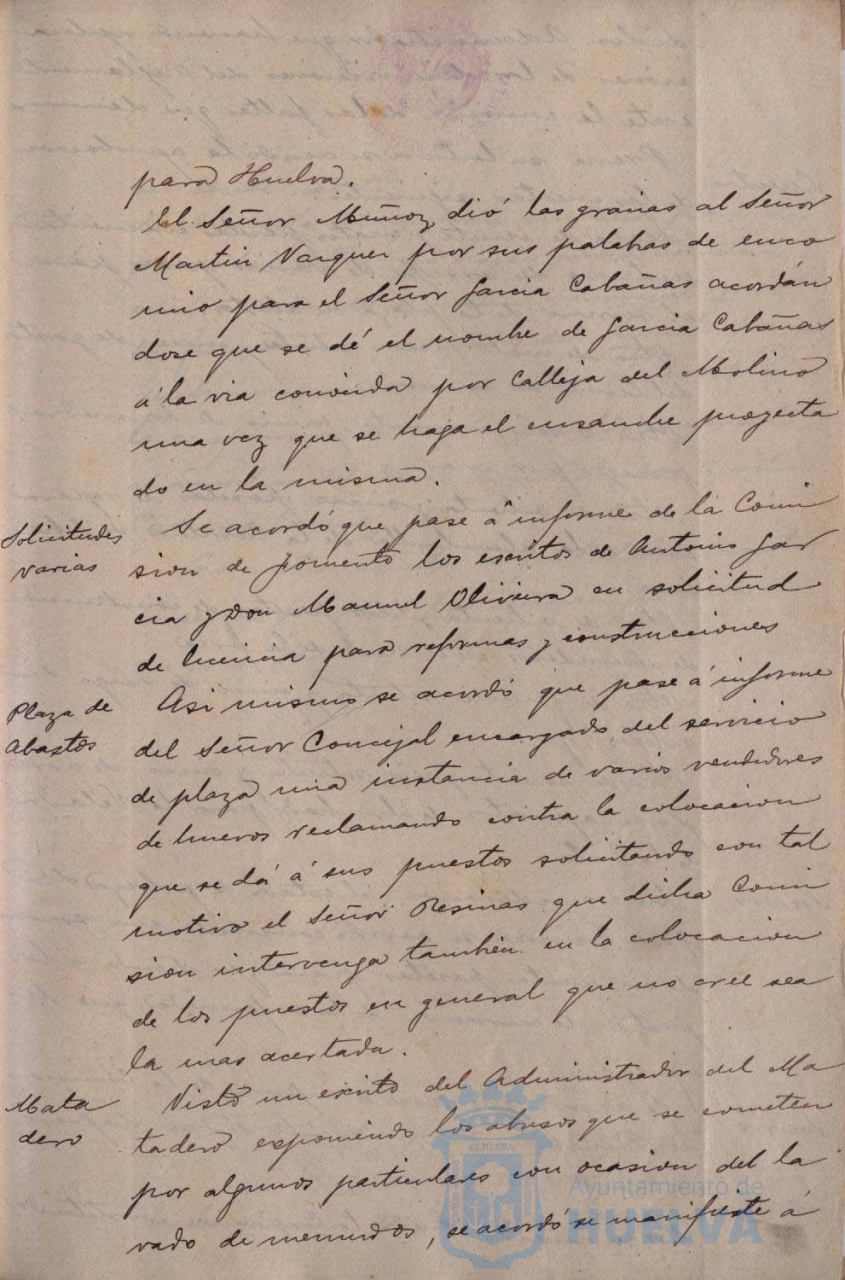 para Huelva.
El Señor Muñoz dió las gracias al Señor
Martin Vazquez por sus palabras de enco
mio para el Señor Garcia Cabañas acordán
dose que se dé el nombre de Garcia Cabañas
á la via conocida por Calleja del Molino
una vez que se haga el ensanche proyecta
do en la misma.
Solicitudes
varias
Se acordó que pase á informe de la Comi
sion de fomento los escritos de Antonio Gar
cia y Don Manuel Oliveira en solicitud
de licencia para reformas y construcciones
Plaza de
Abastos
Asi mismo se acordó que pase á informe
del Señor Concejal encargado del servicio
de plaza una instancia de varios vendedores
de huevos reclamando contra la colocacion
que se dá á sus puestos solicitando con tal
motivo el Señor Resinas que dicha Comi
sion intervenga también en la colocacion
de los puestos en general que no cree sea
la mas acertada.
Mata
dero
Visto un escrito del Administrador del Ma
tadero exponiendo los abusos que se cometen
por algunos particulares con ocasion del la
vado de menudos, se acordó se manifieste á
Ayuntamiento de
HUELVA